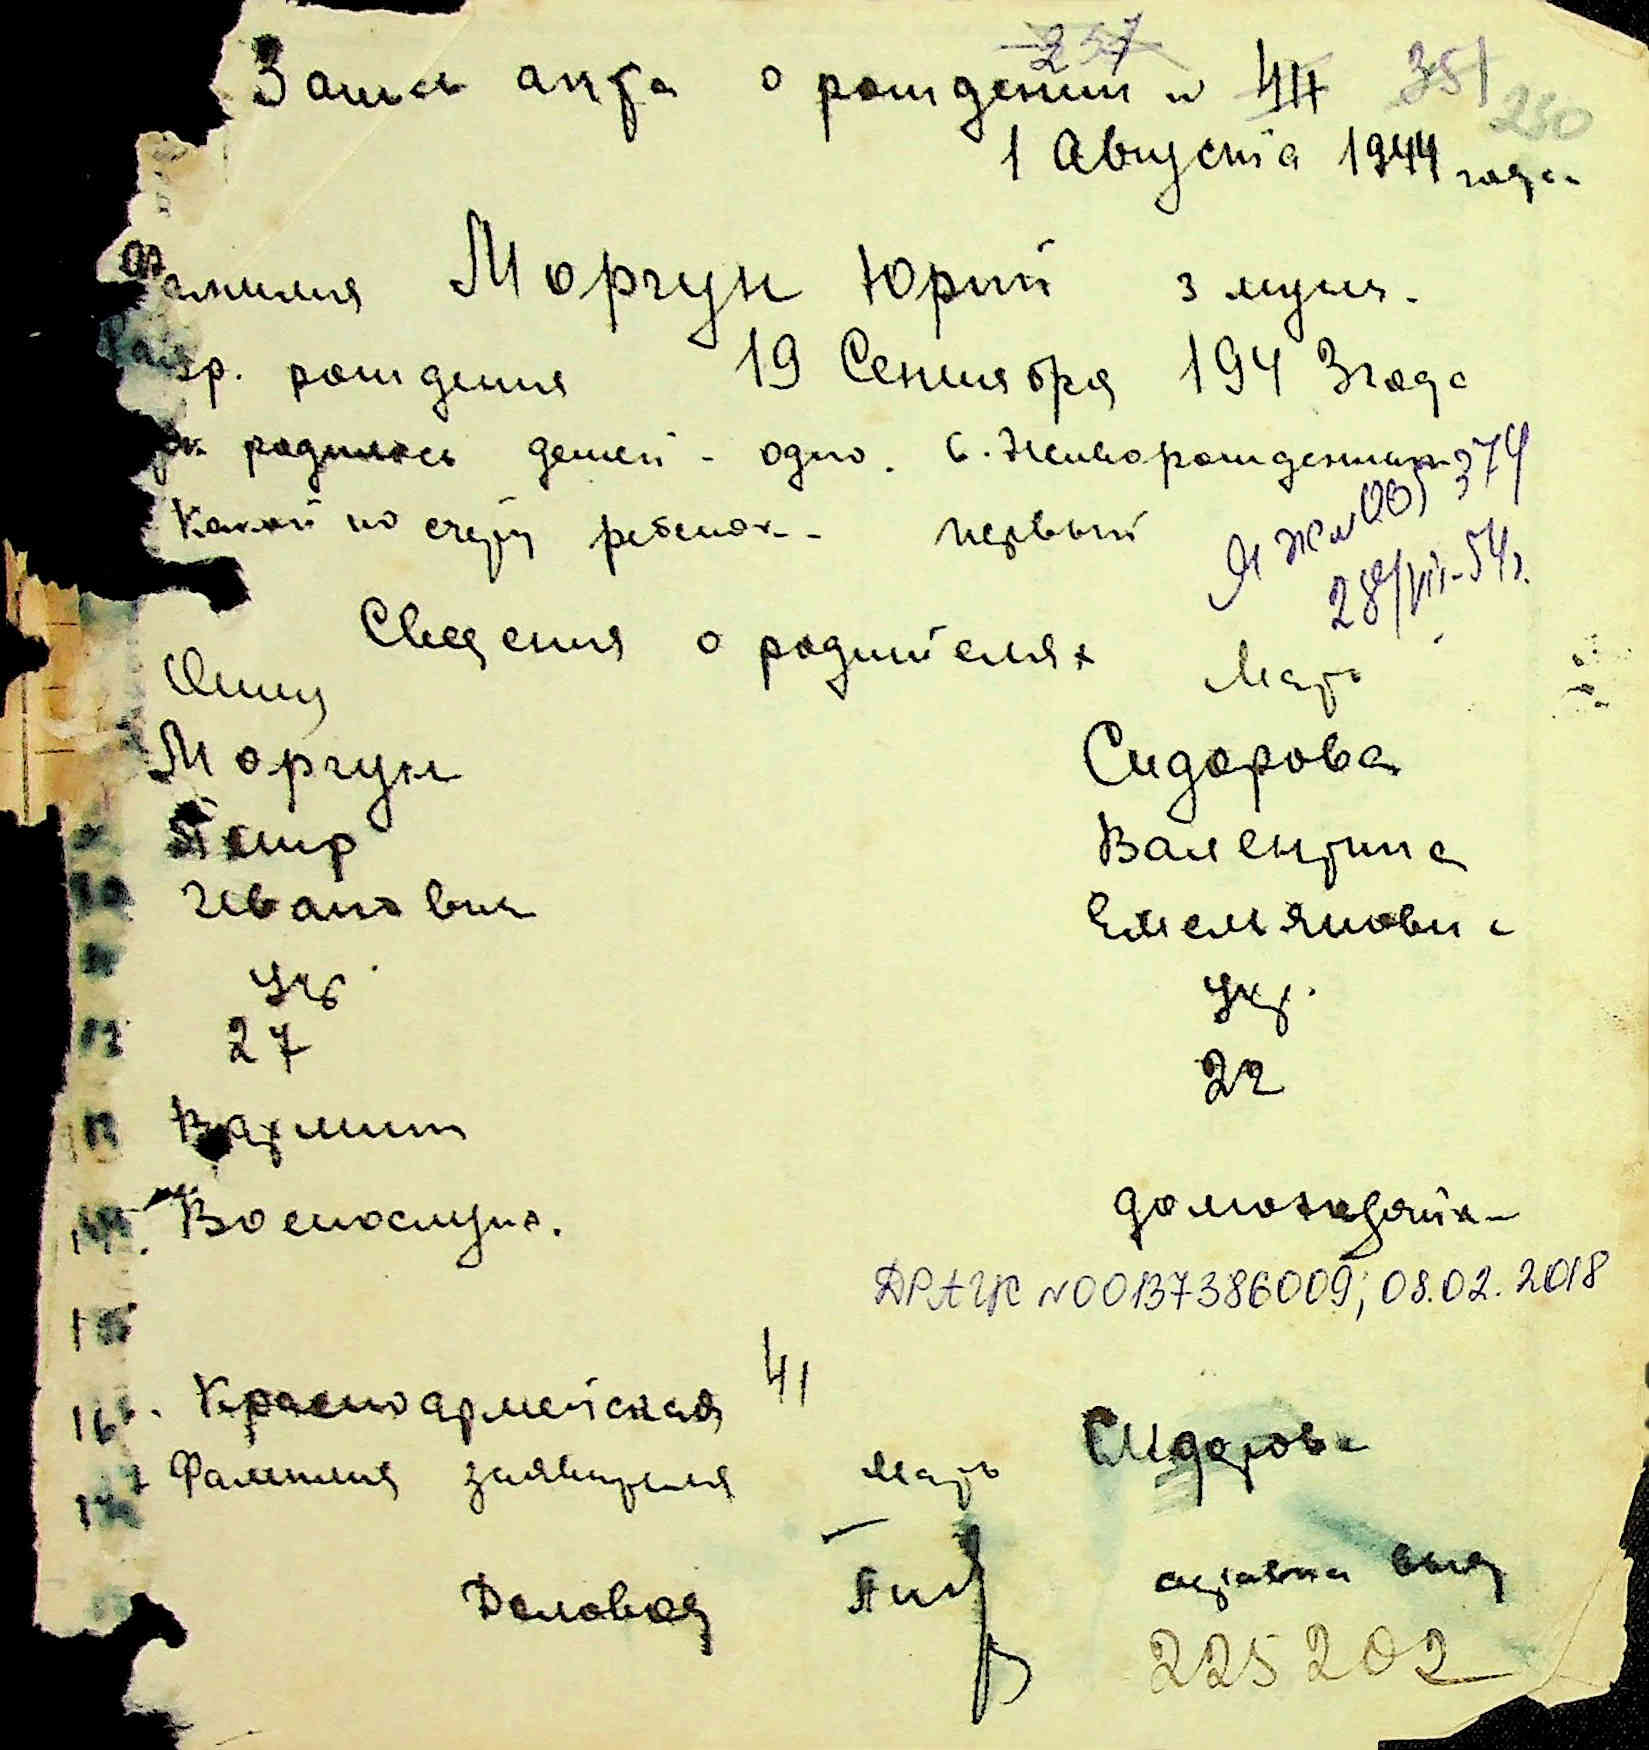 257
Запись акта о рождении N 44 351 230
1 Августа 1944 года
Фамилия Моргун Юрий 3 муж.
вр. рождения 19 Сентября 1943 года
родилось детей - одно. 6. Живорожденным
Какой по счету ребенок - первый
Я ЖЛ N 005374
28/VII-54г.
Сведения о родителях
Отец Мать
Моргун Сидорова
Петр Валентина
Иванович Емельяновна
Укр. Укр.
27 22
13 Вахмист
14. Военослуж. домохозяйка
ДРАЦС N00137386009; 08.02.2018
15
16. Красноармейская 41
17 Фамилия заявителя мать Сидорова
Деловод
225202